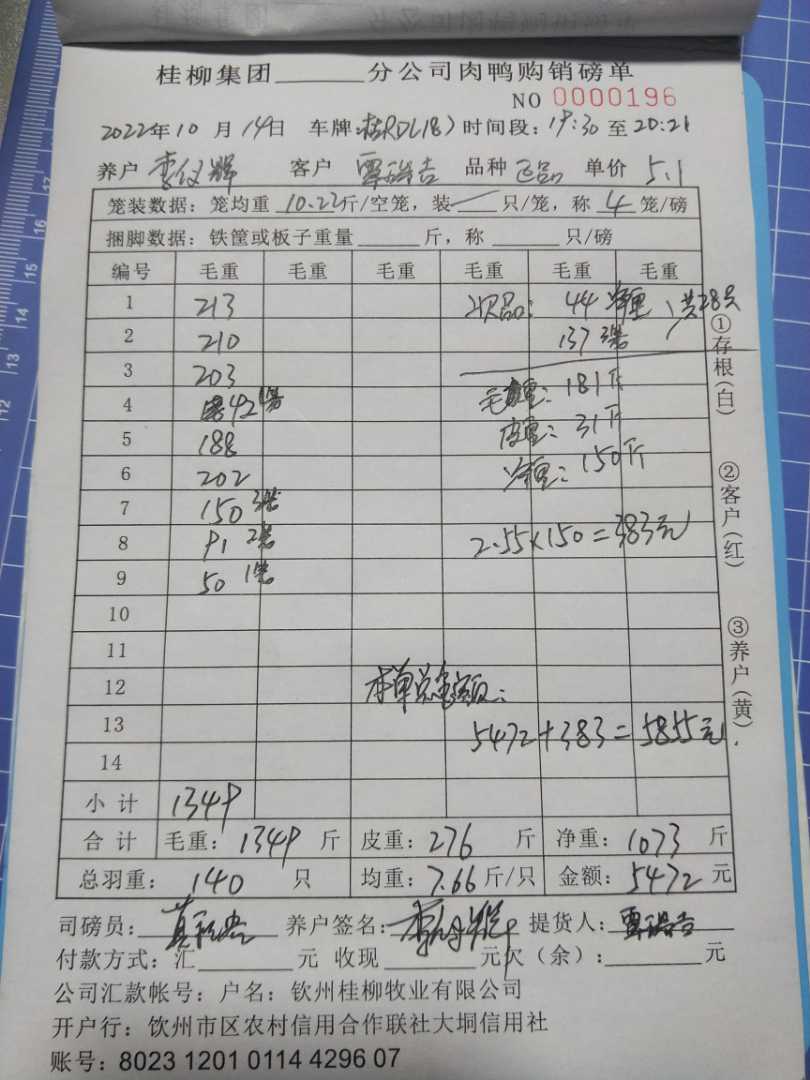 桂柳集团______分公司肉鸭购销磅单
NO 0000196
2022年10月14日 车牌: 时间段:19:30至20:21
养户 李仪 客户 覃 品种 正品 单价 5.1
笼装数据：笼均重 10.22斤/空笼，装 一 只/笼，称 4 笼/磅
捆脚数据：铁筐或板子重量______斤，称______只/磅
编号 毛重 毛重 毛重 毛重 毛重 毛重
1 213 次品: 44 净重 共28只
2 210 137 3笼
3 203
4 42 1笼 毛重: 181斤
5 188 皮重: 31斤
6 202 净重: 150斤
7 150 3笼
8 91 2笼 2.55×150=383元
9 50 1笼
10
11
12 本单总金额:
13 5472+383=5855元.
14
小计 1349
合计 毛重: 1349 斤 皮重: 276 斤 净重: 1073 斤
总羽重: 140 只 均重: 7.66 斤/只 金额: 5472 元
司磅员: 养户签名: 提货人: 覃
付款方式: 汇______元 收现______元欠（余）:______元
公司汇款帐号: 户名: 钦州桂柳牧业有限公司
开户行: 钦州市区农村信用合作联社大垌信用社
账号: 8023 1201 0114 4296 07
①存根(白)
②客户(红)
③养户(黄)